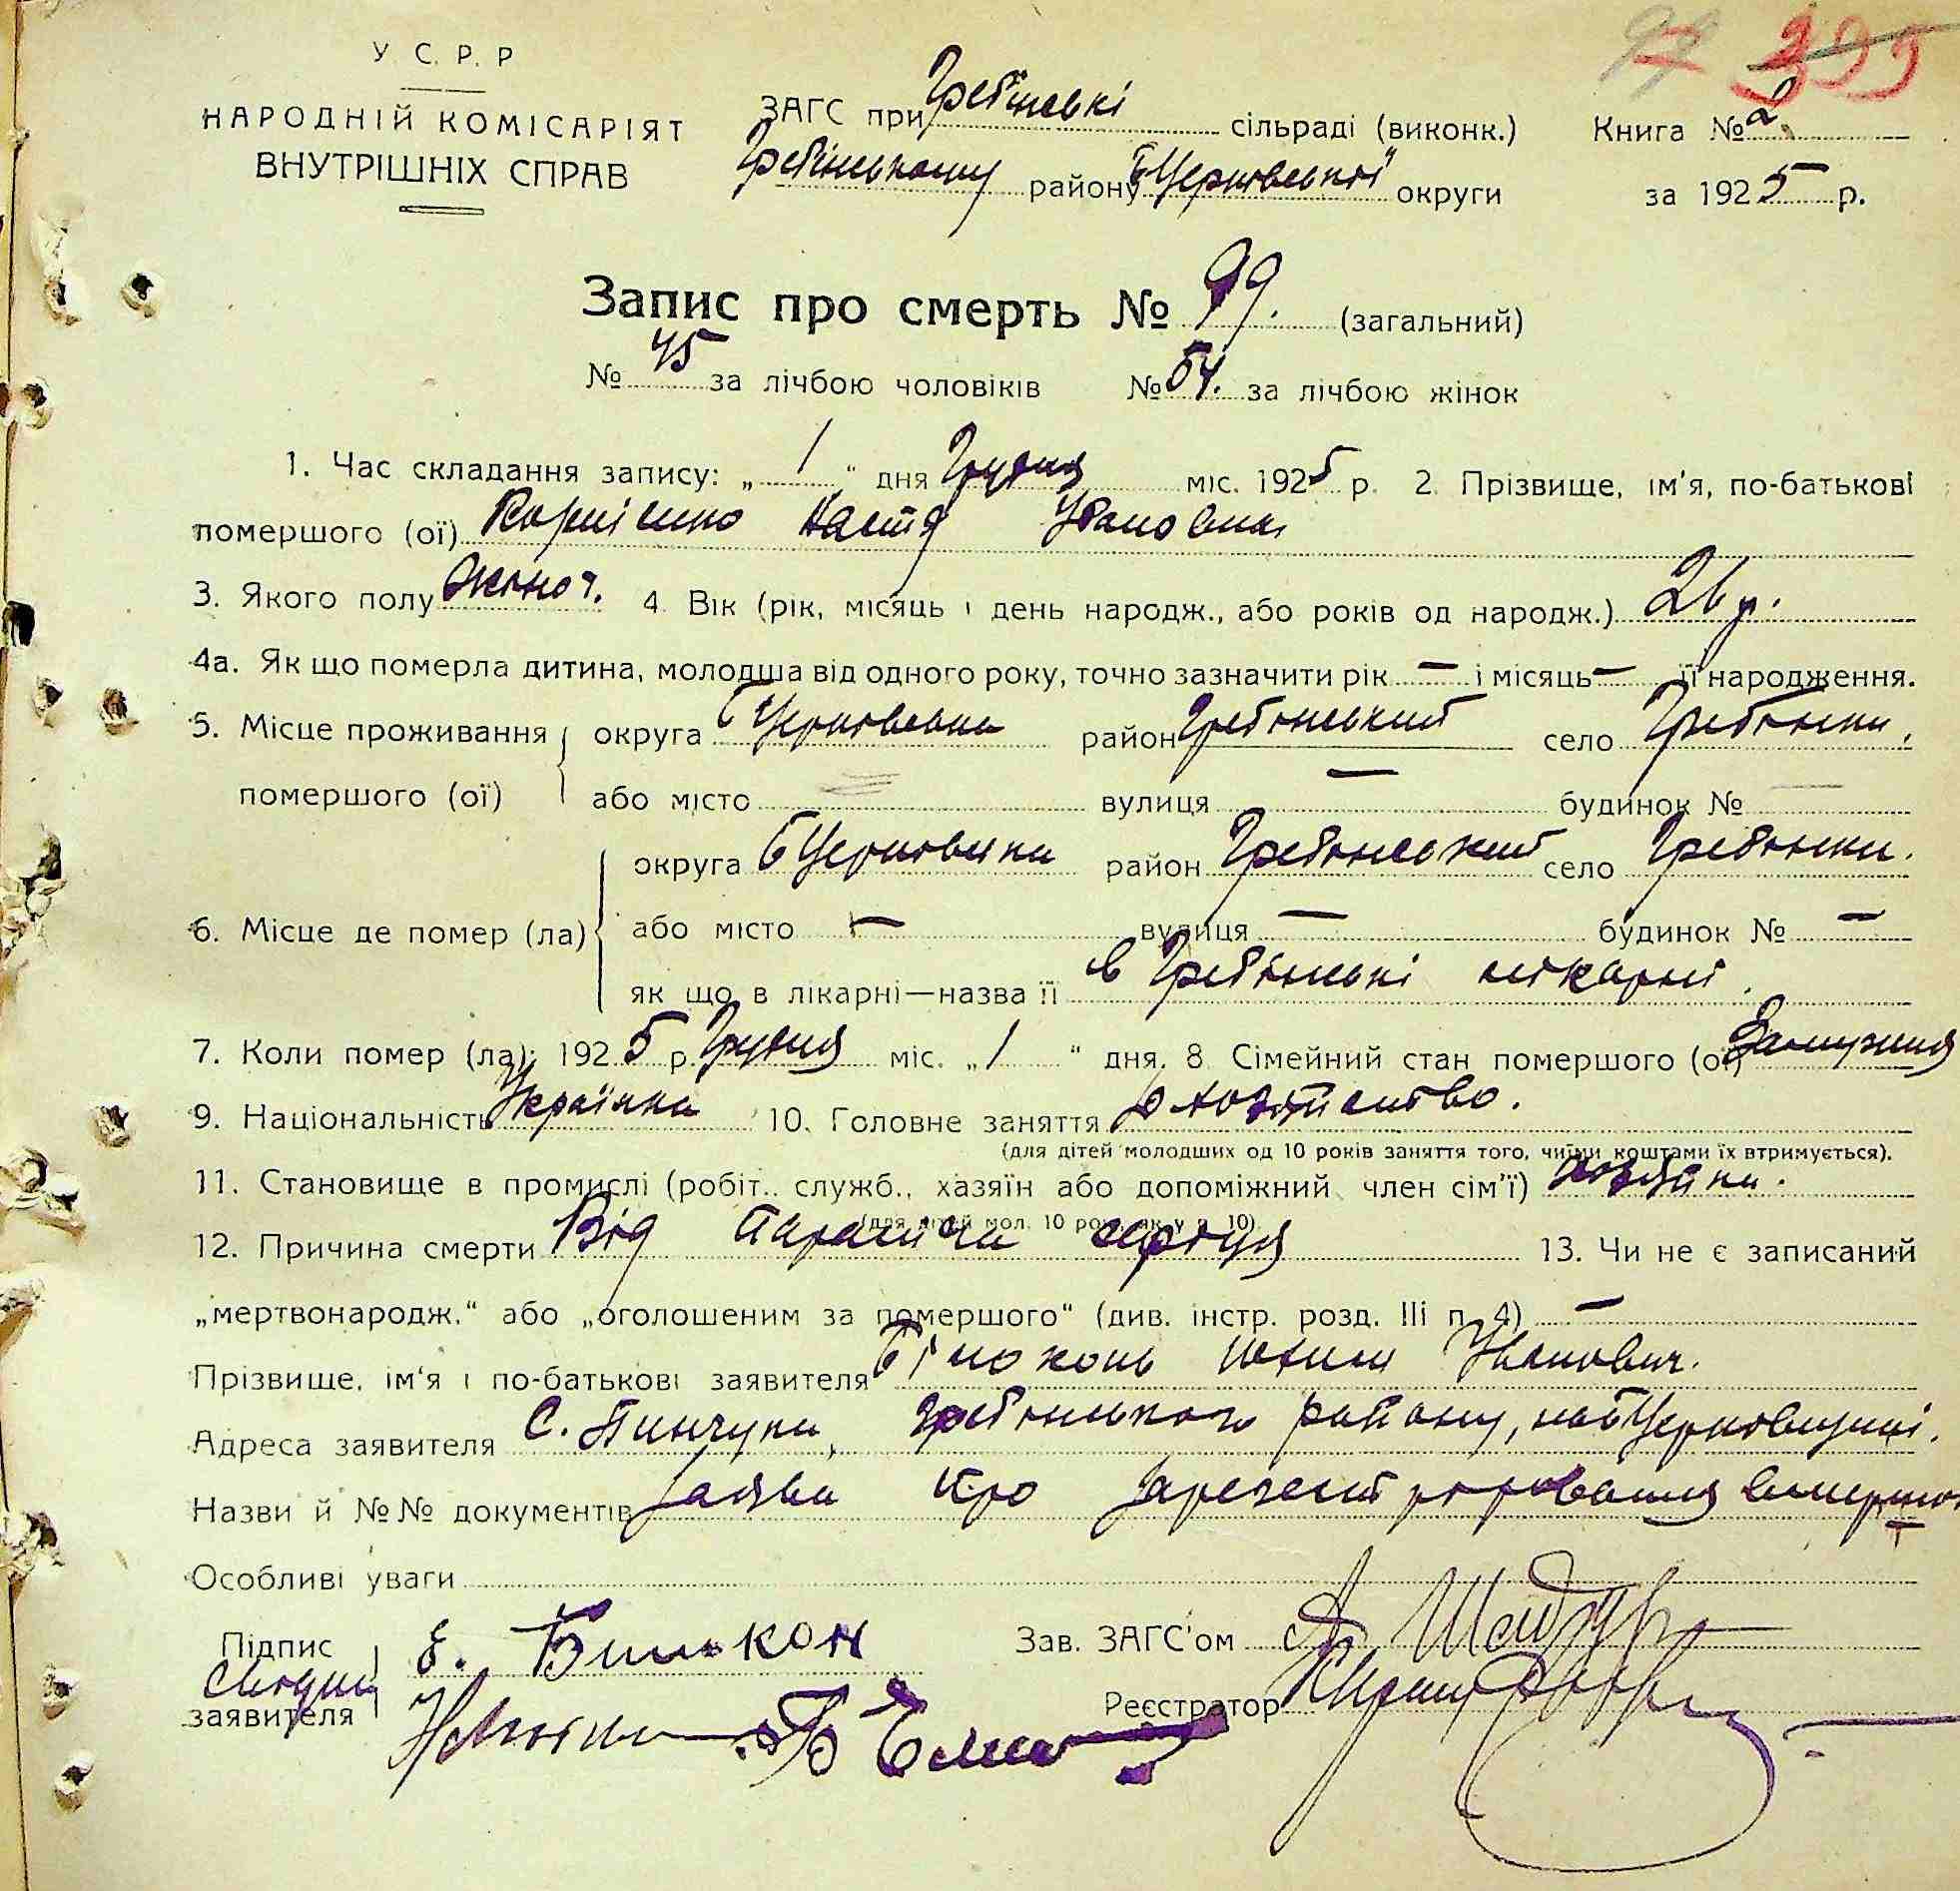 У. С. Р. Р
НАРОДНІЙ КОМІСАРІЯТ
ВНУТРІШНІХ СПРАВ
ЗАГС при Гребінські сільраді (виконк.)
Гребінському району Б Церковської округи
Книга № 2
за 1925 р.
Запис про смерть № 99. (загальний)
№ 45 за лічбою чоловіків № 54. за лічбою жінок
1. Час складання запису: „ 1 “ дня Грудня міс. 1925 р. 2. Прізвище, ім'я, по-батькові
помершого (ої) Корнієнко Настя Івановна
3. Якого полу жіноч. 4. Вік (рік, місяць і день народж., або років од народж.) 26 р.
4а. Як що померла дитина, молодша від одного року, точно зазначити рік — і місяць — її народження.
5. Місце проживання округа БЦерковська район Гребінський село Гребінки,
помершого (ої) або місто вулиця — будинок №
округа БЦерковська район Гребінський село Гребінки.
6. Місце де помер (ла) або місто — вулиця — будинок № —
як що в лікарні—назва її в Гребінські лікарні.
7. Коли помер (ла): 1925 р. Грудня міс. „ 1 “ дня. 8. Сімейний стан помершого (ої) Замужня
9. Національність Українка 10. Головне заняття
(для дітей молодших од 10 років заняття того, чиїми коштами їх втримується).
11. Становище в промислі (робіт., служб., хазяїн або допоміжний член сім'ї) хозяйка.
(для дітей мол. 10 рок. як у п. 10)
12. Причина смерти Від параліча серця 13. Чи не є записаний
„мертвонародж.“ або „оголошеним за помершого“ (див. інстр. розд. III п. 4) —
Прізвище, ім'я і по-батькові заявителя Білоконь Юхим Іванович.
Адреса заявителя С. Пинчуки, Гребінького району, на БЦерковщині.
Назви й №№ документів Заява про зареєстрорования
Особливі уваги
Підпис Е. Билокон Зав. ЗАГС'ом
заявителя Реєстратор